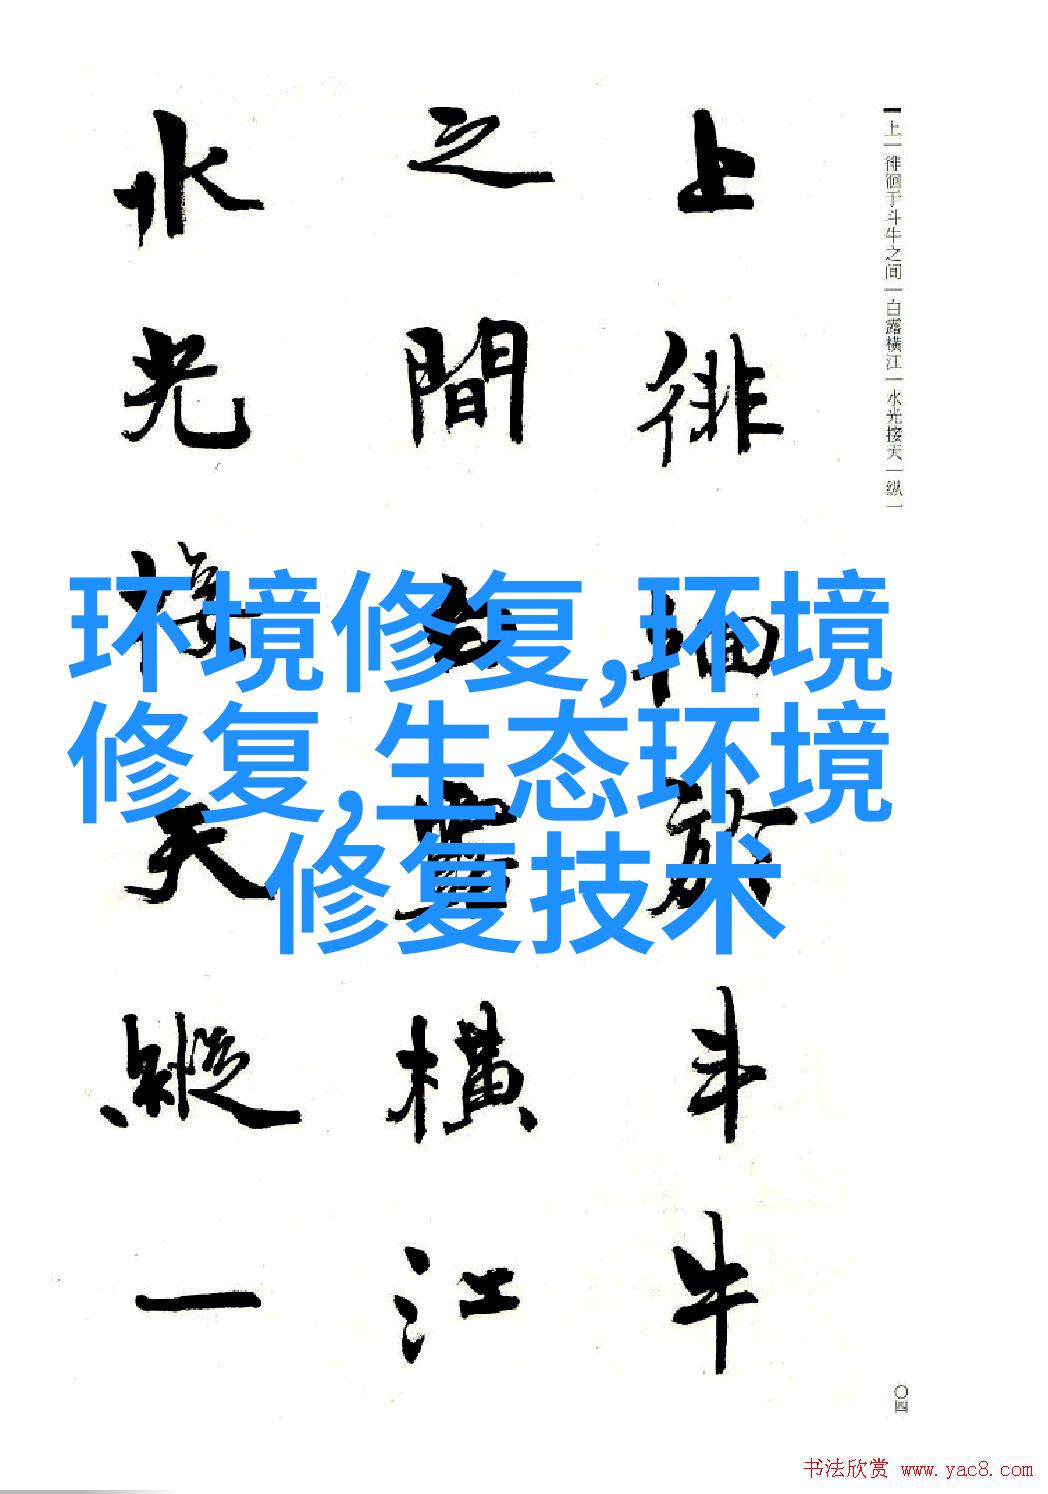 上徘徊於斗牛
之間白露橫江
水光接天縱一
上一徘徊于斗牛之间一白露横江一水光接天一纵一
〇四
环境修复,环境
修复,生态环境
修复技术
书法欣赏 www.yac8.com